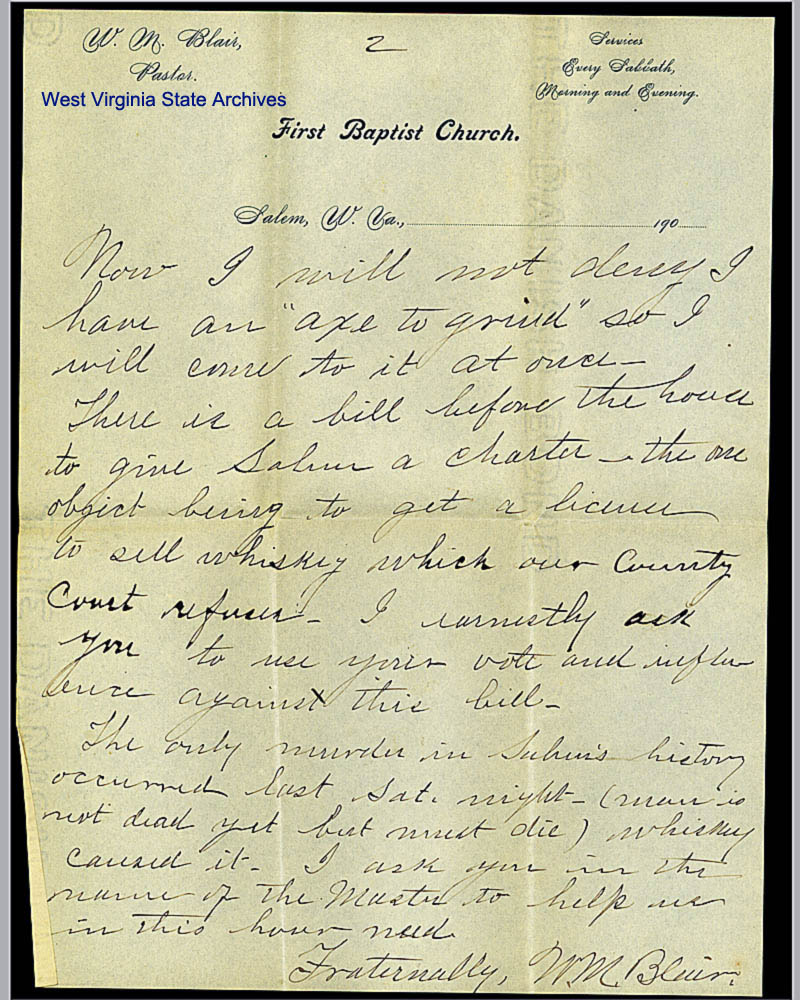 W. M. Blair,
Pastor.
2
Services
Every Sabbath,
Morning and Evening.
West Virginia State Archives
First Baptist Church.
Salem, W. Va., 190
Now I will not deny I
have an "axe to grind" so I
will come to it at once—
There is a bill before the house
to give Salem a charter — the one
object being to get a license
to sell whiskey which our County
Court refuses - I earnestly ask
you to use your vote and influ
ence against this bill -
The only murder in Salem's history
occurred last Sat. night - (man is
not dead yet but must die) whiskey
caused it - I ask you in the
name of the Master to help us
in this hour need.
Fraternally, W M Blair.